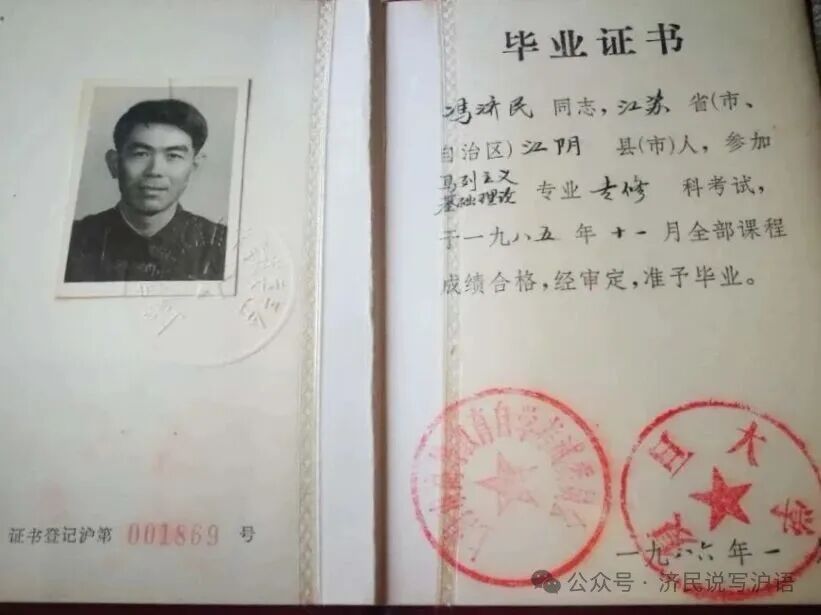 毕业证书
冯济民 同志，江苏 省(市、
自治区) 江阴 县(市)人，参加
马列主义
基础理论 专业 专修 科考试，
于一九八五年十一月全部课程
成绩合格，经审定，准予毕业。
上海市高等教育自学考试委员会
复旦大学
一九八六年一
证书登记沪第 001869 号
公众号 · 济民说写沪语